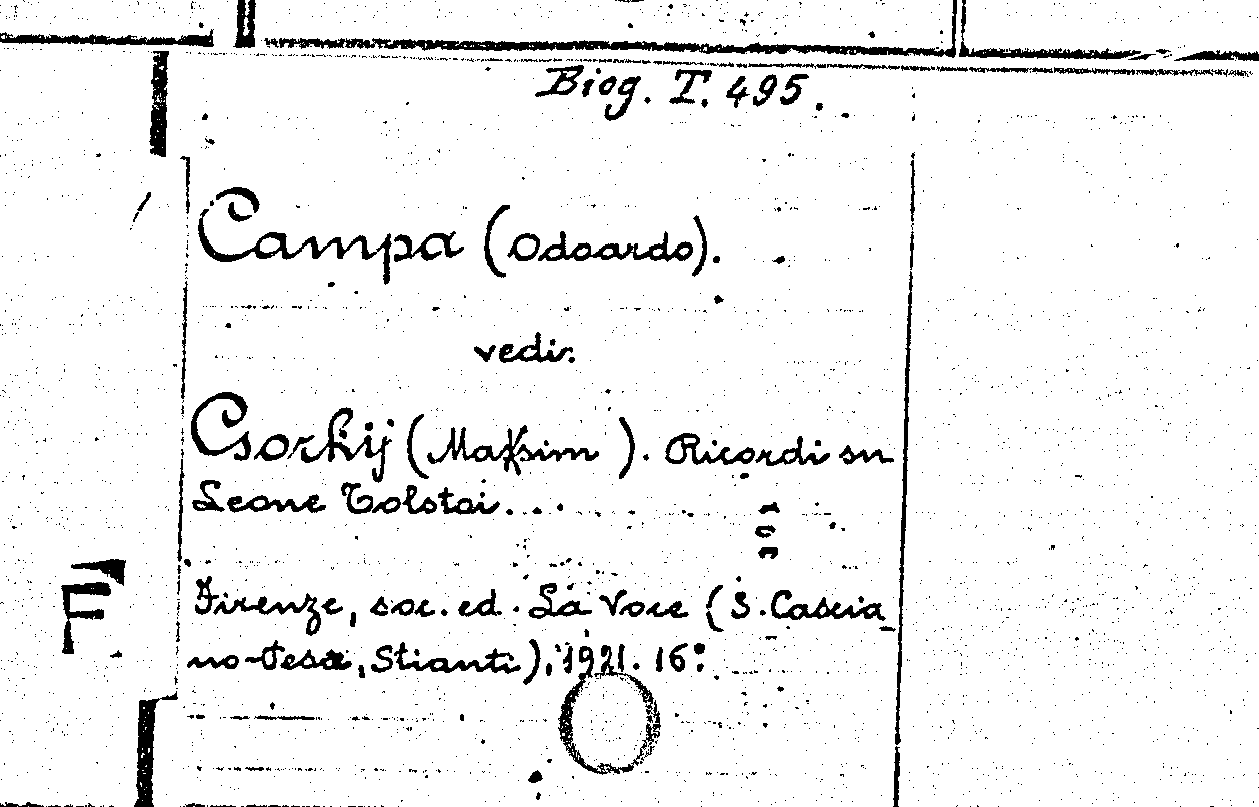 Biog. T. 495.
Campa (Odoardo).
vedi:
Gorkij (Maksim ). Ricordi su
Leone Tolstoi...
Firenze, soc. ed. La Voce (S. Cascia_
no-Pesa, Stianti), 1921. 16°
F